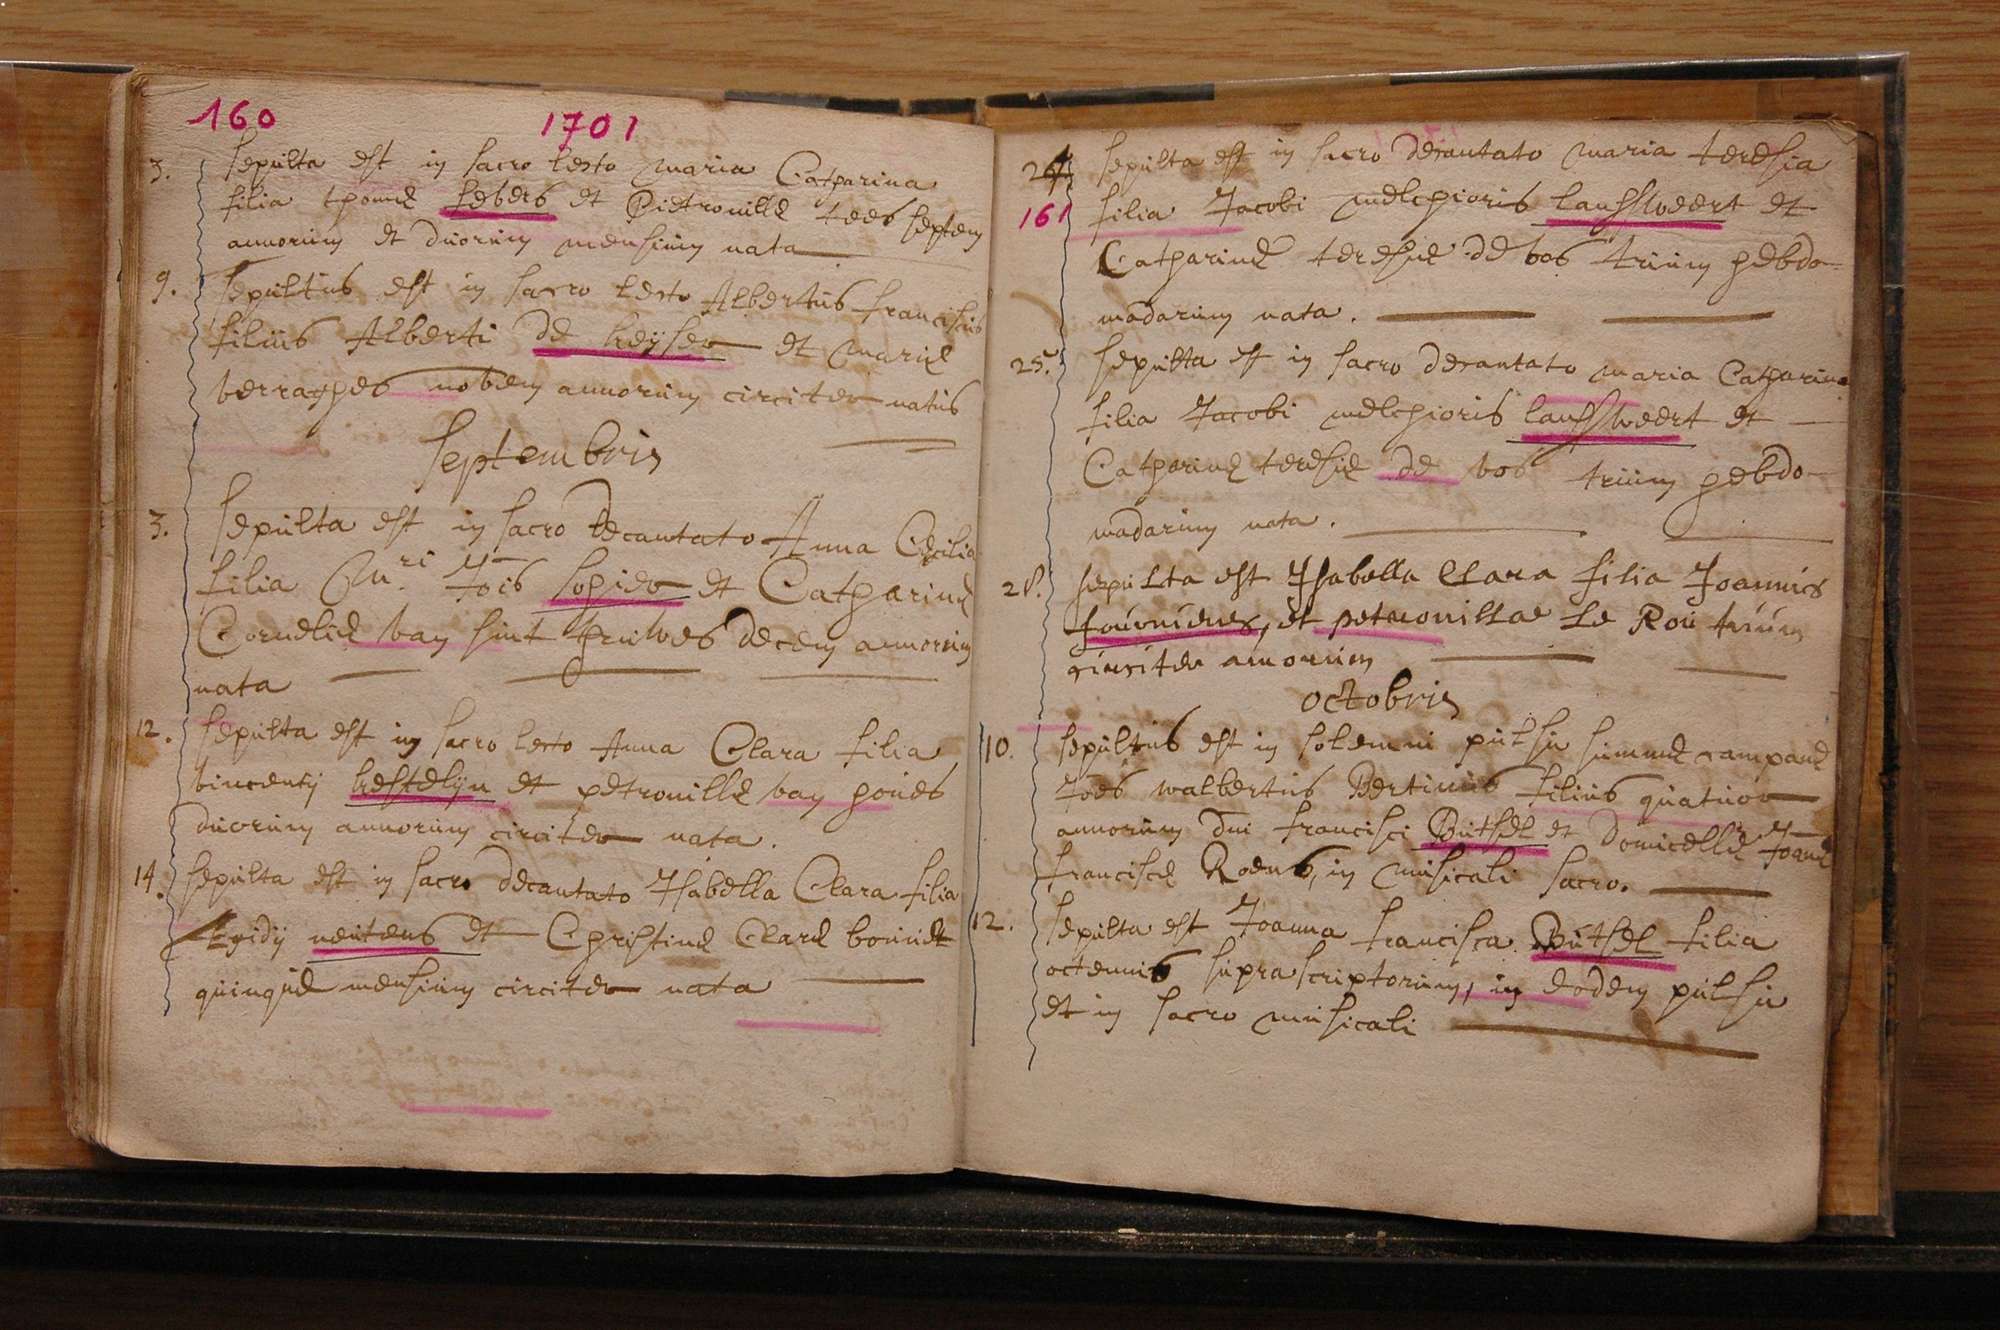 160 1701
3. sepulta est in sacro lecto Maria Catharina
filia thomæ sebers et Pietronillæ tees septem
annorum et duorum mensium nata
9. sepultus est in sacro lecto Albertus franciscus
filius Alberti de keyser et Mariæ
verraghes novem annorum circiter natus
Septembris
3. sepulta est in sacro decantato Anna Cecilia
filia Mri Jois et Catharinæ
Corneliæ van sint truives decem annorum
nata
12. sepulta est in sacro lecto Anna Clara filia
vincentij kestelyn et petronillæ van hoúes
duorum annorum circiter nata.
14. sepulta est in sacro decantato Isabella Clara filia
Egidij neutens et Christinæ Claræ
quinque mensium circiter nata
24 sepulta est in sacro decantato Maria teresia
161 filia Jacobi melchioris lanssweert et
Catharinæ teresiæ de vos trium hebdo-
madarum nata.
25. sepulta est in sacro decantato Maria Catharina
filia Jacobi melchioris lanssweert et
Catharinæ teresiæ de vos trium hebdo-
madarum nata.
28. sepulta est Isabella Clara filia Joannis
, et petronillae Le Rou trium
circiter annorum
octobris
10. sepultus est in solemni pulsu summæ campanæ
Joes walbertus Bertinus filius quatuor
annorum dni francisci Butsel et Domicellæ Joanæ
franciscæ Roens, in musicali sacro.
12. sepulta est Joanna francisca Butsel filia
octennis suprascriptorum, in eodem pulsu
et in sacro musicali